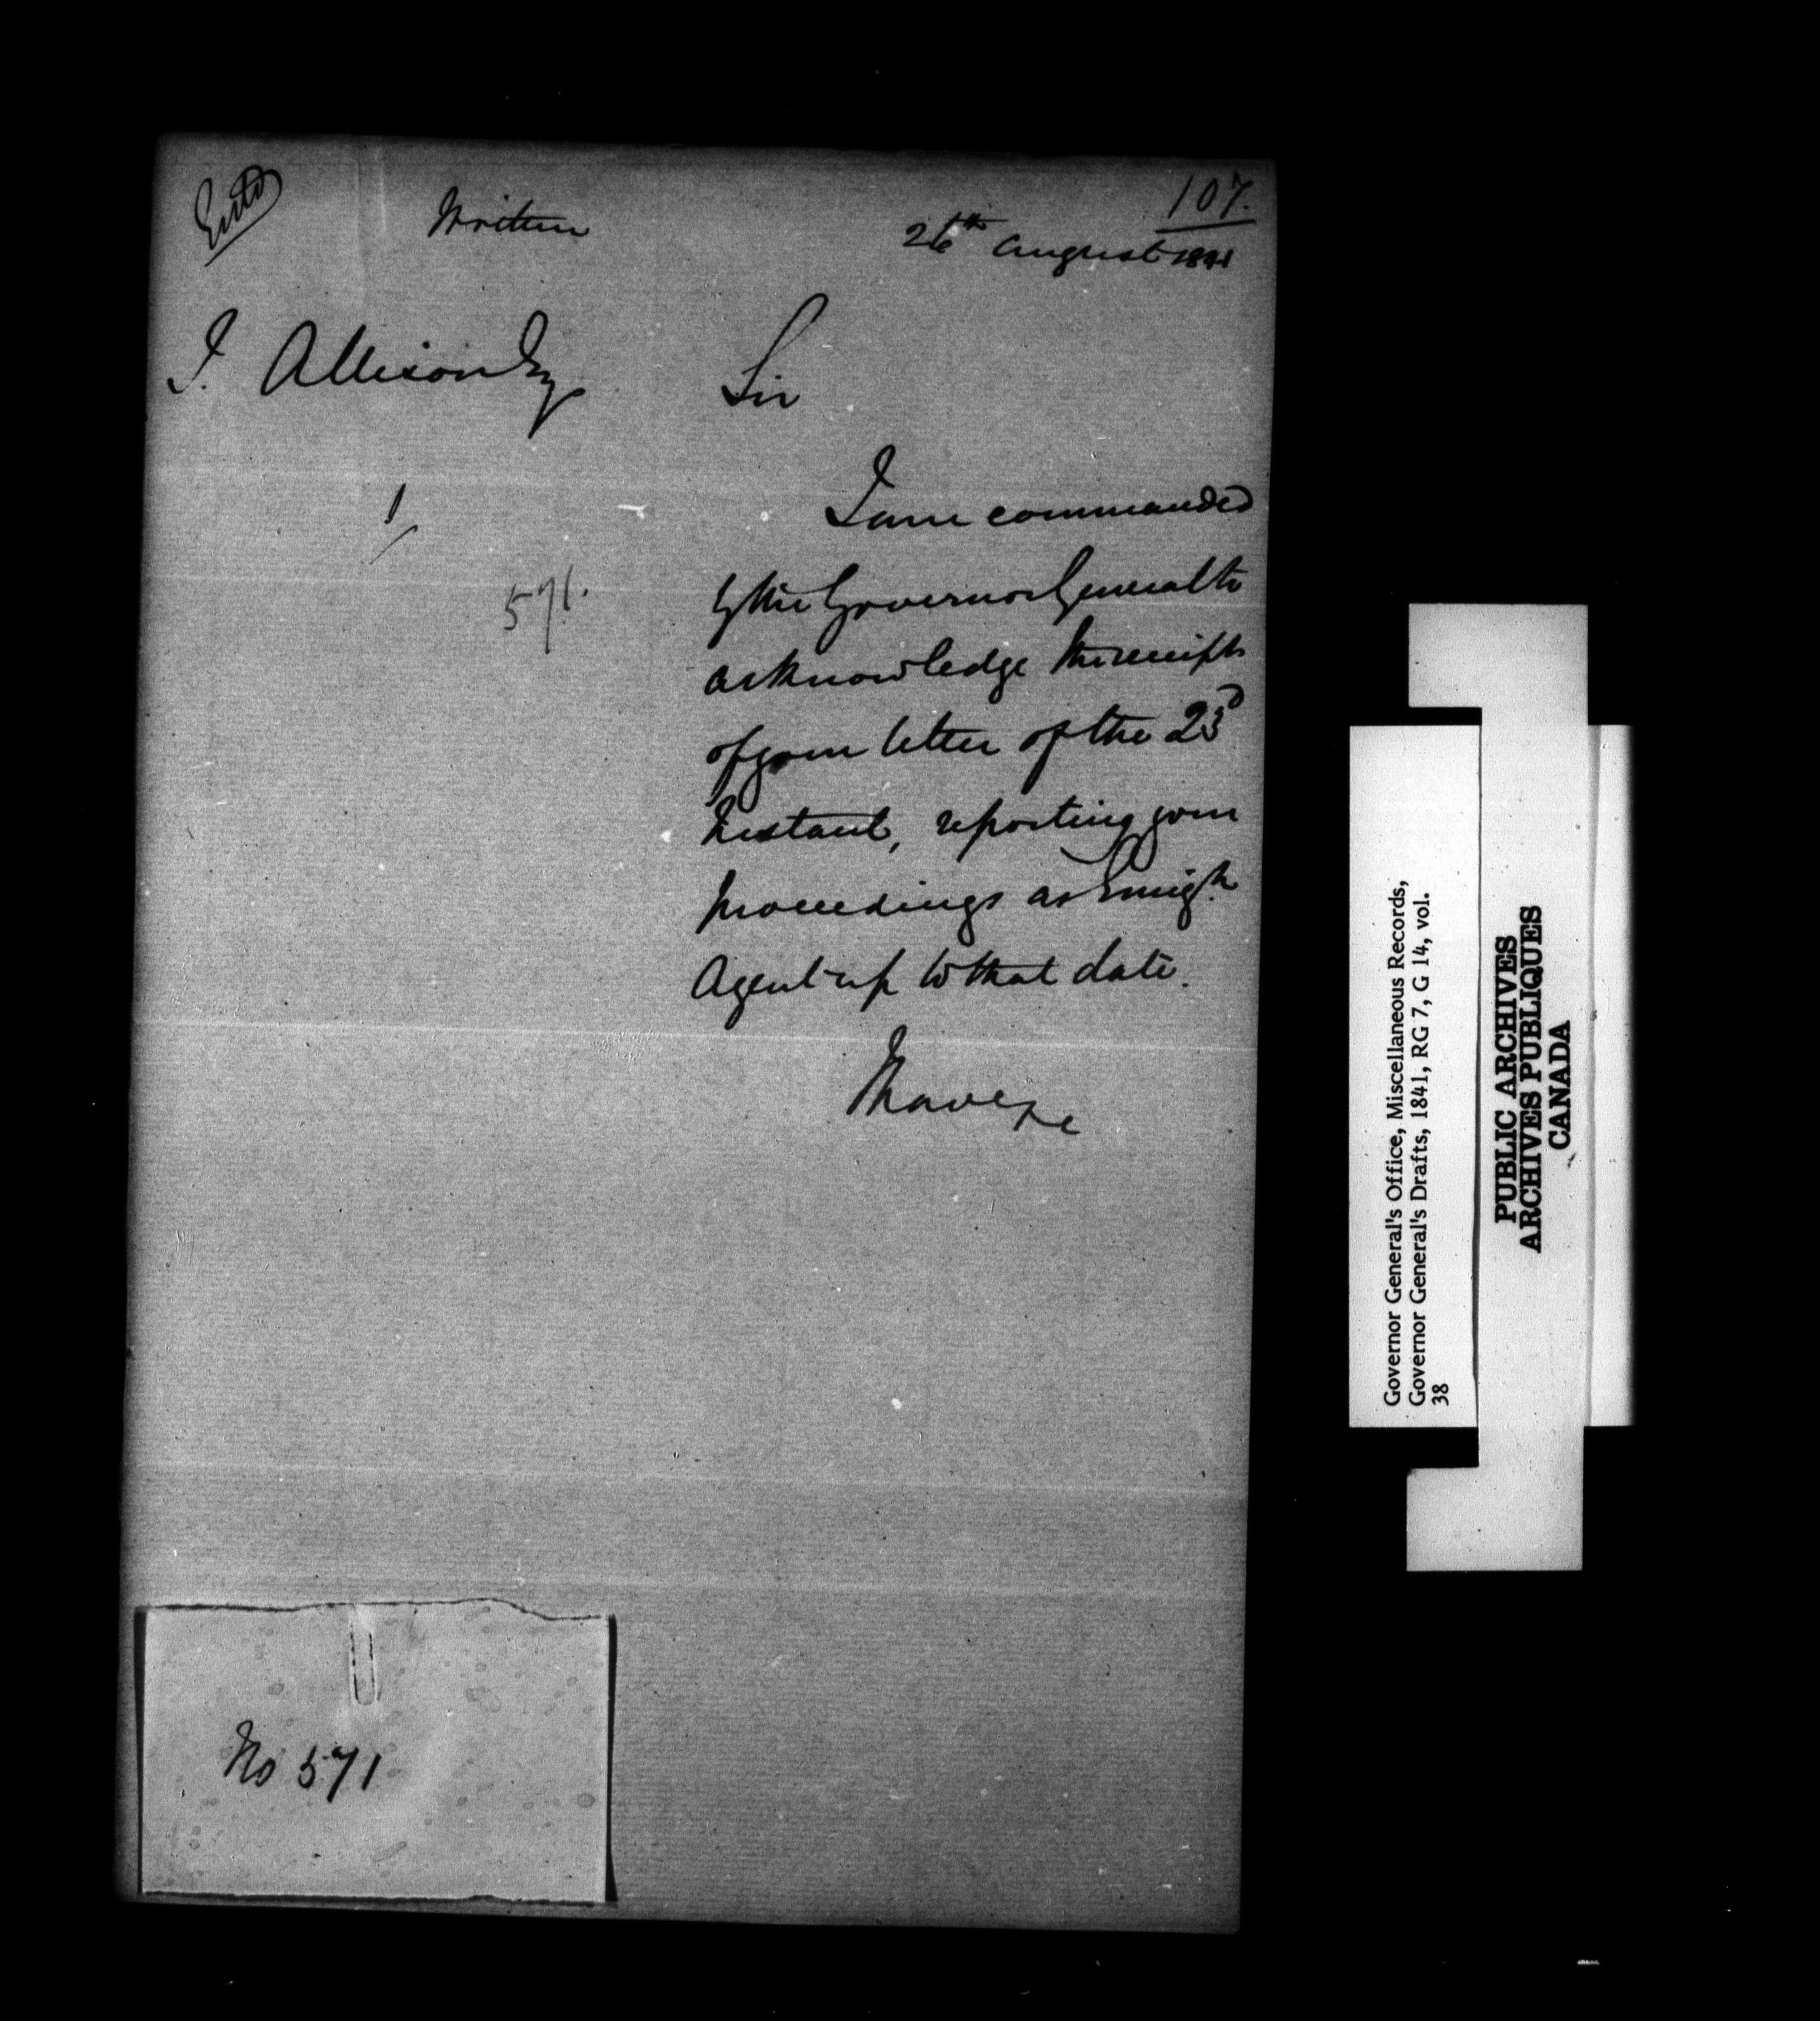 Entd
107.
Written
26th August 1841
I. Allison Esq
Sir
1/
I am commanded
571.
by the Governor General to
acknowledge the receipt
of your letter of the 23d
Instant, reporting your
proceedings as Emigt.
Agent up to that date.
I have &c
No 571
Governor General's Office, Miscellaneous Records,
Governor General's Drafts, 1841, RG 7, G 14, vol.
38
PUBLIC ARCHIVES
ARCHIVES PUBLIQUES
CANADA